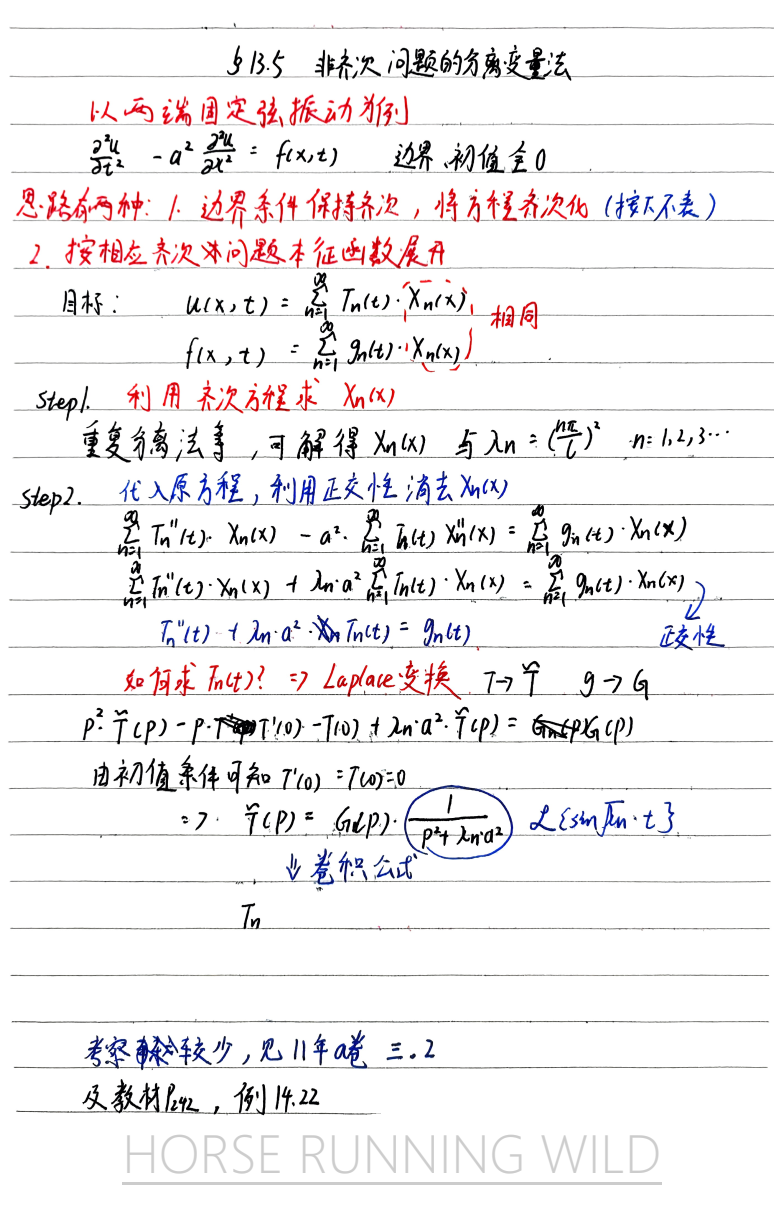 §13.5 非齐次问题的分离变量法
以两端固定弦振动为例
∂²u/∂t² - a² ∂²u/∂x² = f(x,t) 边界、初值全0
思路有两种: 1. 边界条件保持齐次，将方程齐次化 (按下不表)
2. 按相应齐次问题本征函数展开
目标: u(x,t) = ∑_{n=1}^∞ Tn(t)·Xn(x)
相同
f(x,t) = ∑_{n=1}^∞ gn(t)·Xn(x)
step1. 利用齐次方程求 Xn(x)
重复分离法等，可解得 Xn(x) 与 λn = (nπ/l)² n=1,2,3…
step2. 代入原方程，利用正交性消去Xn(x)
∑_{n=1}^∞ Tn''(t)·Xn(x) - a²·∑_{n=1}^∞ Tn(t) Xn''(x) = ∑_{n=1}^∞ gn(t)·Xn(x)
∑_{n=1}^∞ Tn''(t)·Xn(x) + λn·a² ∑_{n=1}^∞ Tn(t)·Xn(x) = ∑_{n=1}^∞ gn(t)·Xn(x)
Tn''(t) + λn·a²·Tn(t) = gn(t) 正交性
如何求Tn(t)? => Laplace变换 T→T̃ g→G
p²·T̃(p) - p·T'(0) - T(0) + λn·a²·T̃(p) = G(p)
由初值条件可知 T'(0) = T(0) = 0
=> T̃(p) = G(p)·1/(p²+λn·a²) ℒ{sin√λn·t}
⇓ 卷积公式
Tn
考察较少，见11年a卷 三.2
及教材P242，例14.22
HORSE RUNNING WILD